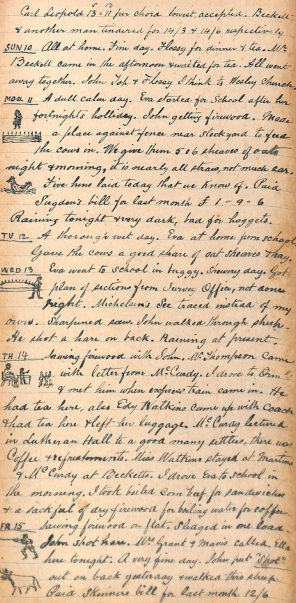 Carl Leopold 13-11 per chord lowest accepted. Beckett
& another man tendered for 14/3 & 14/6 respectively
SUN 10 All at home. Fine day. Flossy for dinner & tea. Mr
Beckett came in the afternoon & waited for tea. All went
away together. John Joh & Flossy I think to Wesley Church.
MON. 11 A dull calm day. Eva started for School after her
fortnights holliday. John getting firewood. Made
a place against fence near stockyard to feed
the cows in. We give them 5 or 6 sheaves of oats
night & morning, it is nearly all straw, not much ear.
Five hens laid today that we know of. Paid
Sugden's bill for last month £ 1-9-6
Raining tonight & very dark, bad for huggets.
TU 12 A thorough wet day. Eva at home from school
Gave the cows a good share of oat sheaves & hay.
WED 13 Eva went to School in buggy. Showery day. Got
plan of sections from Survey Office, not done
right. Michelsen's Sec traced instead of my
own. Sharpened saw. John walked through sheep.
He shot a hare on back. Raining at present.
TH. 14 Sawing firewood with John. Mr Thompson came
with letter from McCurdy. I drove to
& met him when express train came in. He
had tea here, also Edy Watkins came up with Coach
& had tea here & left her luggage. Mr Curdy lectured
in Lutheran Hall to a good many settlers, there was
Coffee & refreshments. Miss Watkins stayed at Martins
& McCurdy at Becketts. I drove Eva to school in
the morning. I took boiled corn beef for sandwiches
& a sack full of dry firewood for boiling water for coffee
FR 15 Sawing firewood on flat. Sledged in one load.
John shot hare. Mrs Grant & Mavis called.
here tonight. A very fine day. John put "Spot"
out on back yesterday & walked thro sheep
Paid Skinners bill for last month 12/6